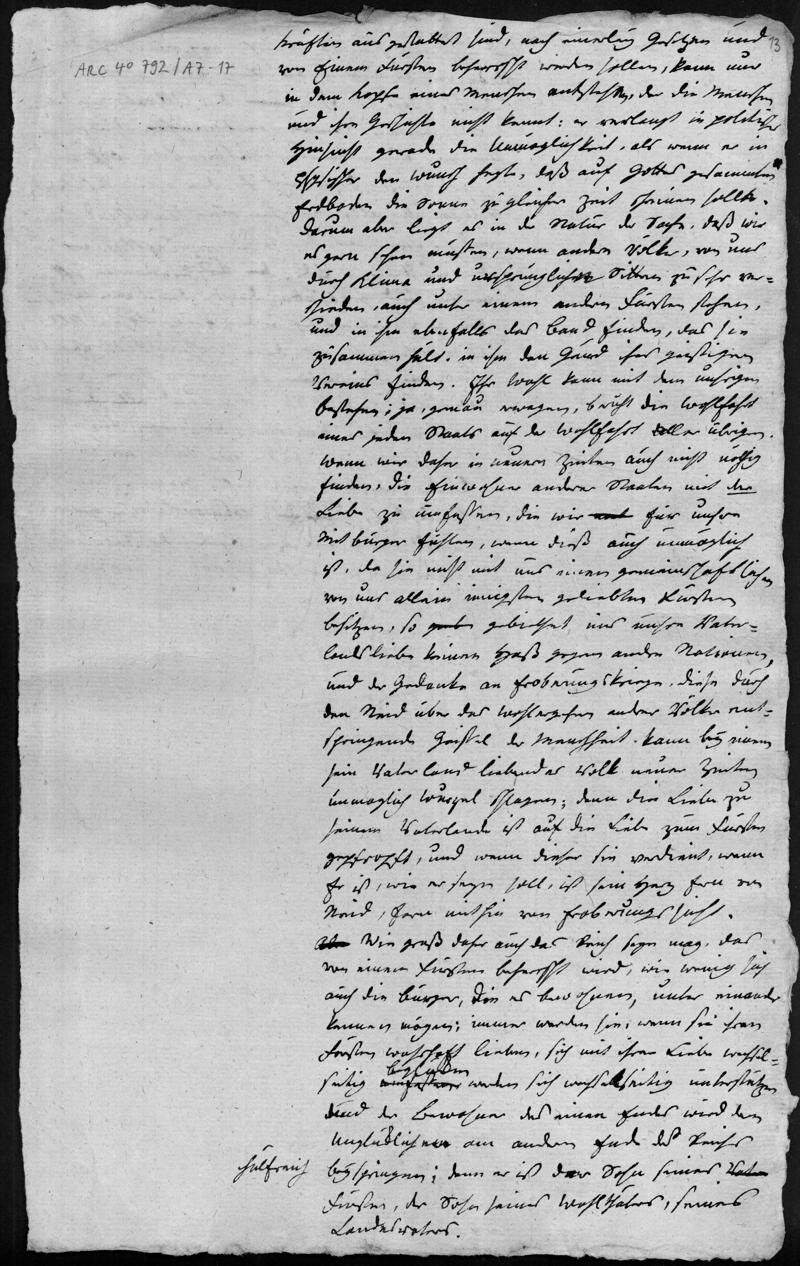 13
ARC 4° 792/A7-17
kräften ausgestattet sind, nach einerley Gesetzen und
von Einem Fürsten beherrscht werden sollen, kann nur
in dem Kopfe eines Menschen entstehen, der die Menschen
und ihre Geschichte nicht kennt: er verlangt in politischer
Hinsicht gerade die Unmöglichkeit, als wenn er in
physischer den Wunsch hegte, daß auf Gottes gesammten
Erdboden die Sonne zu gleicher Zeit scheinen sollte.
Darum aber liegt es in der Natur der Sache, daß wir
es gern sehen müssen, wenn andere Völker, von uns
durch Klima und ursprüngliche Sitten zu sehr ver-
schieden, auch unter einem andern Fürsten stehen,
und in ihm ebenfalls das Band finden, das sie
zusammen hält, in ihm den Grund ihres geistigen
Vereins finden. Ihr Wohl kann mit dem unsrigen
bestehen; ja, genau erwogen, beruht die Wohlfahrt
eines jeden Staats auf der Wohlfahrt aller übrigen.
Wenn wir daher in neuern Zeiten auch nicht nöthig
finden, die Einwohner anderer Staaten mit der
Liebe zu umfassen, die wir für unsre
Mitbürger fühlen, wenn dieß auch unmöglich
ist, da sie nicht mit uns einen gemeinschaftlichen
von uns allein innigsten geliebten Fürsten
besitzen, so gebiethet uns unsre Vater-
landsliebe keinen Haß gegen andre Nationen,
und der Gedanke an Eroberungskriege, diese durch
den Neid über das Wohlergehen andrer Völker ent-
springende Geissel der Menschheit, kann bey einem
sein Vaterland liebendes Volk neuer Zeiten
unmöglich Wurzel schlagen; denn die Liebe zu
seinem Vaterlande ist auf die Liebe zum Fürsten
gepfropft, und wenn dieser sie verdient, wenn
Er ist, wie er seyn soll, ist sein Herz fern von
Neid, fern mithin von Eroberungssucht.
Wie groß daher auch das Reich seyn mag, das
von einem Fürsten beherrscht wird, wie wenig sich
auch die Bürger, die es bewohnen, unter einander
kennen mögen; immer werden sie, wenn sie ihren
Fürsten wahrhaft lieben, sich mit ihrer Liebe wechsel-
seitig beglücken werden sich wechselseitig unterstützen
und der Bewohner des einen Endes wird dem
Unglücklichen am andern Ende des Reichs
hülfreich
beyspringen; denn er ist der Sohn seines
Fürsten, der Sohn seines Wohlthäters, seines
Landesvaters.